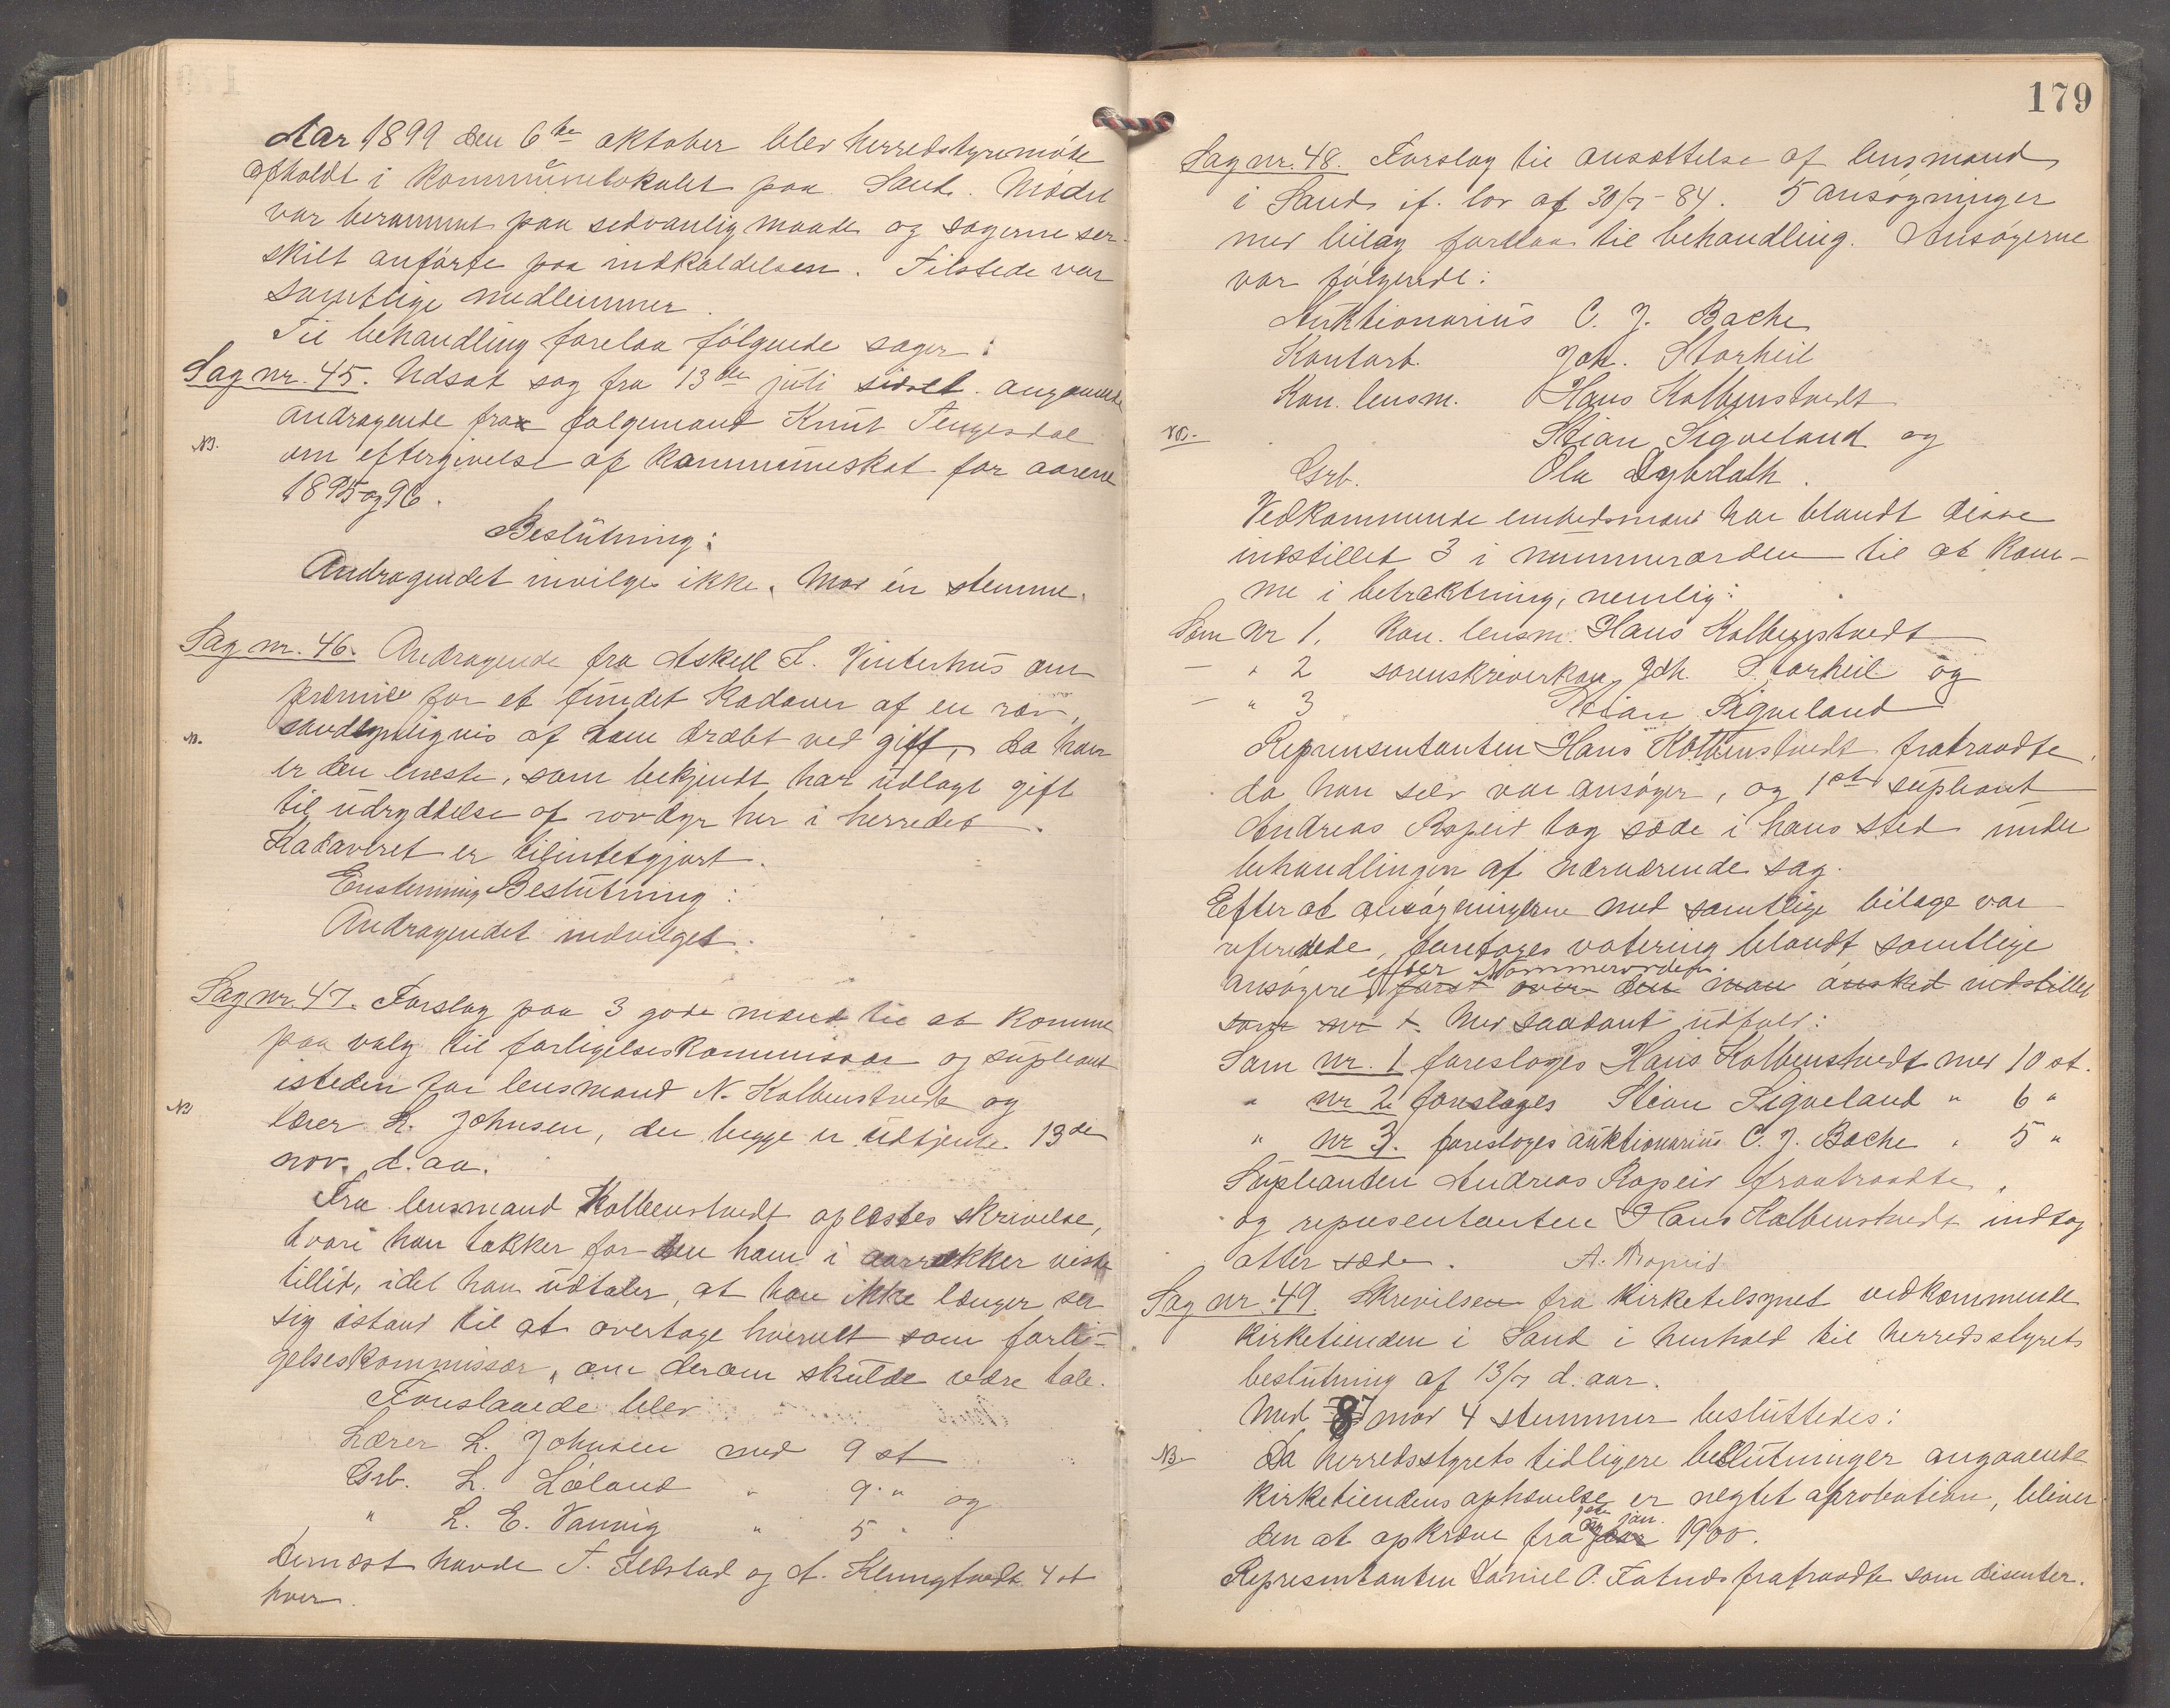 Aar 1899 den 6te oktober blev herredstyremøde
afholdt i kommunelokalet paa Sand. Mødet
var berammet paa sedvanlig maade og sagerne ser-
skilt anførte paa indkaldelsen. Tilstede var
samtlige medlemmer.
Til behandling forelaa følgende sager:
Sag nr. 45. Udsat sag fra 13de juli sidst. angaaende
andragende fra følgemand Knut Tengesdal
NB. om eftergivelse af kommuneskat for aarene
1895 og 96.
Beslutning:
Andragendet invilges ikke. Mod én stemme.
Sag nr. 46. Andragende fra Askell L. Vinterhus om
præmie for et fundet kadaver af en ræv,
NB. sandsynligvis af ham dræbt ved gift, da han
er den eneste, som bekjendt har udlagt gift
til udryddelse af rovdyr her i herredet.
Kadaveret er tilintetgjort.
Enstemmig Beslutning:
Andragendet indvilget.
Sag nr. 47. Forslag paa 3 gode mænd til at komme
paa valg til forligelseskommissær og supleant
isteden for lensmand N. Kolbenstvedt og
NB lærer L. Johnsen, der begge er udtjente 13de
nov. d. aa.
Fra lensmand Kolbenstvedt oplæstes skrivelse,
hvori han takker for den ham i aarrækker viste
tillid, idet han udtaler, at han ikke længer ser
sig istand til at overtage hvervet som forli-
gelseskommissær, om derom skulde være tale.
Foreslaaede blev
Lærer L. Johnsen med 9 st
Grb. L. Løland " 9 " og
" L. E. Vanvig " 5 "
Dernæst havde T. Ilebstad og A. Klungtvedt 4 st
hver.
179
Sag nr. 48. Forslag til ansættelse af lensmand
i Sand if. lov af 30/7-84. 5 ansøgninger
med bilag forelaa til behandling. Ansøgerne
var følgende:
Auktionarius C. J. Bache
Kontorb. Joh. Storheil
Kon. lensm. Hans Kolbenstvedt
NB. Stian Sigveland og
Grb. Ola Dybdahl.
Vedkommende embedsmand har blandt disse
indstillet 3 i nummerorden til at kom-
me i betraktning, nemlig:
Som Nr 1. Kon. lensm. Hans Kolbenstvedt
— " 2 sorenskriverkon. Joh. Storheil og
— " 3 Stian Sigveland
Repræsentanten Hans Kolbenstvedt fratraadte,
da han selv var ansøger, og 1ste supleant
Andreas Ropeid tog sæde i hans sted under
behandlingen af nærværende sag.
Efter at ansøgningerne med samtlige bilage var
refererede, foretoges votering blandt samtlige
efter Nummerorden.
ansøgere, først over den man ønsked indstillet
som nr 1. Med saadant udfald:
Som nr. 1 foresloges Hans Kolbenstvedt med 10 st.
" nr 2 foresloges Stian Sigveland " 6 "
" nr 3. foresloges auktionarius C. J. Bache " 5 "
Supleanten Andreas Ropeid fratraadte,
og representanten Hans Kolbenstvedt indtog
atter sæde. A. Ropeid
Sag nr. 49. Skrivelse fra kirketilsynet vedkommende
kirketienden i Sand i henhold til herredsstyrets
beslutning af 13/7 d. aar.
Med 8 mod 4 stemmer besluttedes:
NB. Da herredsstyrets tidligere beslutninger angaaende
kirketiendens ophævelse er negtet aprobation, bliver
den at opkræve fra jan. 1900.
Representanten Daniel O. Fatnes fratraadte som disenter.